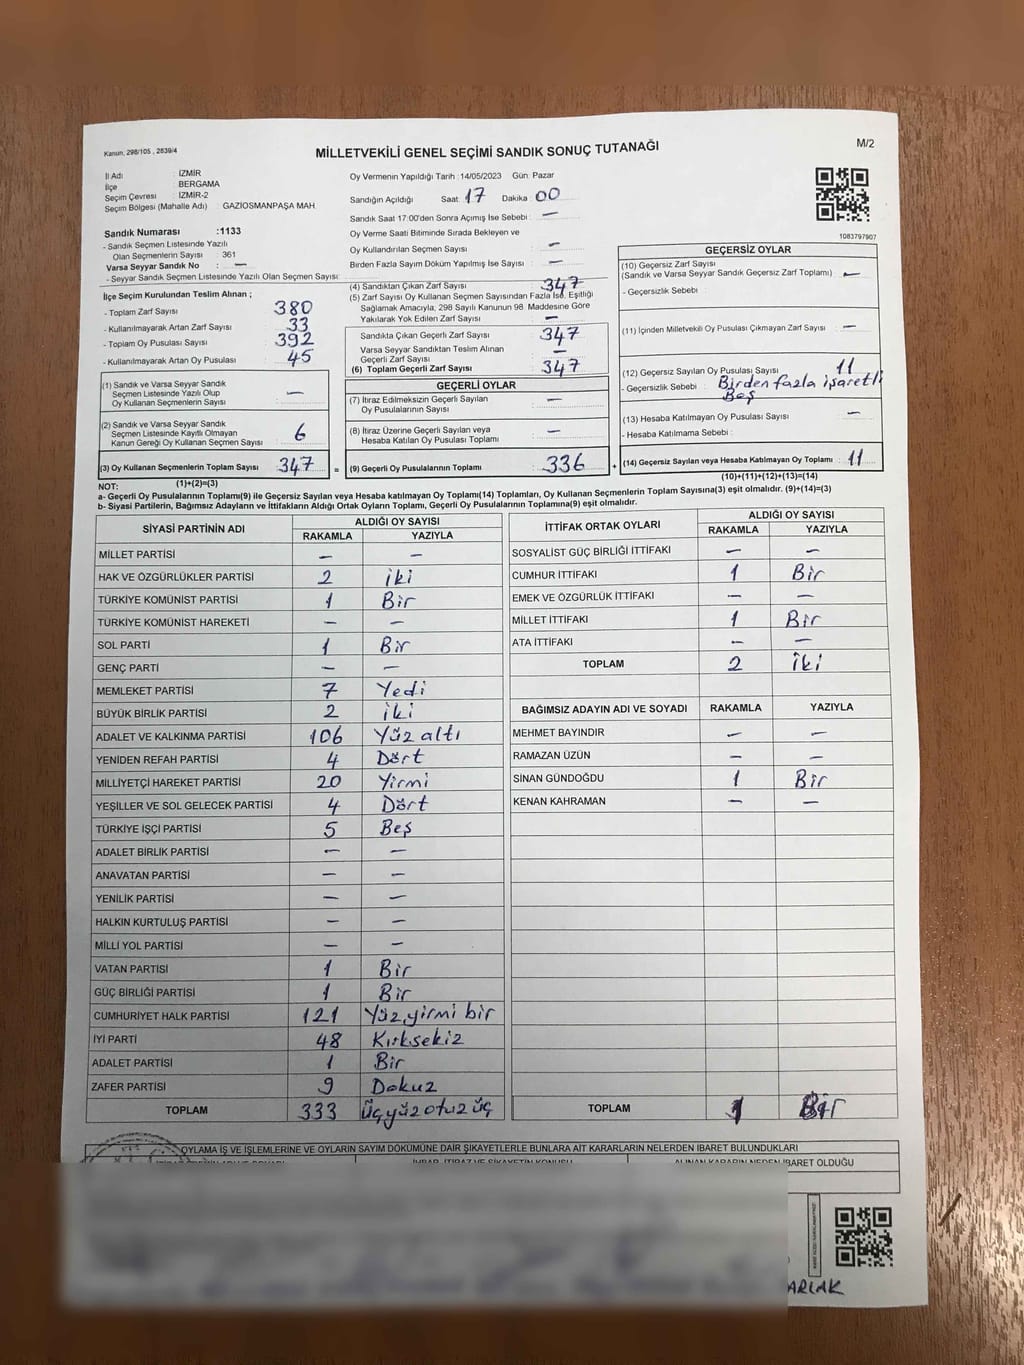 Kanun, 298/105 , 2839/4
MİLLETVEKİLİ GENEL SEÇİMİ SANDIK SONUÇ TUTANAĞI
M/2
İl Adı : İZMİR
İlçe : BERGAMA
Seçim Çevresi : İZMİR-2
Seçim Bölgesi (Mahalle Adı) : GAZİOSMANPAŞA MAH.
Oy Vermenin Yapıldığı Tarih :14/05/2023 Gün: Pazar
Sandığın Açıldığı Saat: 17 Dakika : 00
Sandık Saat 17:00'den Sonra Açımış İse Sebebi : —
Oy Verme Saati Bitiminde Sırada Bekleyen ve
Oy Kullandırılan Seçmen Sayısı : —
Birden Fazla Sayım Döküm Yapılmış İse Sayısı : —
1083797907
Sandık Numarası :1133
- Sandık Seçmen Listesinde Yazılı
Olan Seçmenlerin Sayısı : 361
Varsa Seyyar Sandık No : —
- Seyyar Sandık Seçmen Listesinde Yazılı Olan Seçmen Sayısı:
İlçe Seçim Kurulundan Teslim Alınan ;
- Toplam Zarf Sayısı : 380
- Kullanılmayarak Artan Zarf Sayısı : 33
- Toplam Oy Pusulası Sayısı : 392
- Kullanılmayarak Artan Oy Pusulası : 45
(1) Sandık ve Varsa Seyyar Sandık
Seçmen Listesinde Yazılı Olup
Oy Kullanan Seçmenlerin Sayısı : —
(2) Sandık ve Varsa Seyyar Sandık
Seçmen Listesinde Kayıtlı Olmayan
Kanun Gereği Oy Kullanan Seçmen Sayısı : 6
(3) Oy Kullanan Seçmenlerin Toplam Sayısı : 347 =
(1)+(2)=(3)
(4) Sandıktan Çıkan Zarf Sayısı : 347
(5) Zarf Sayısı Oy Kullanan Seçmen Sayısından Fazla İse, Eşitliği
Sağlamak Amacıyla, 298 Sayılı Kanunun 98. Maddesine Göre
Yakılarak Yok Edilen Zarf Sayısı : —
Sandıkta Çıkan Geçerli Zarf Sayısı : 347
Varsa Seyyar Sandıktan Teslim Alınan
Geçerli Zarf Sayısı : —
(6) Toplam Geçerli Zarf Sayısı : 347
GEÇERLİ OYLAR
(7) İtiraz Edilmeksizin Geçerli Sayılan
Oy Pusulalarının Sayısı : —
(8) İtiraz Üzerine Geçerli Sayılan veya
Hesaba Katılan Oy Pusulası Toplamı : —
(9) Geçerli Oy Pusulalarının Toplamı : 336 +
GEÇERSİZ OYLAR
(10) Geçersiz Zarf Sayısı
(Sandık ve Varsa Seyyar Sandık Geçersiz Zarf Toplamı) : —
- Geçersizlik Sebebi :
(11) İçinden Milletvekili Oy Pusulası Çıkmayan Zarf Sayısı : —
(12) Geçersiz Sayılan Oy Pusulası Sayısı : 11
- Geçersizlik Sebebi : Birden fazla işaretli
Boş
(13) Hesaba Katılmayan Oy Pusulası Sayısı : —
- Hesaba Katılmama Sebebi :
(14) Geçersiz Sayılan veya Hesaba Katılmayan Oy Toplamı : 11
(10)+(11)+(12)+(13)=(14)
NOT:
a- Geçerli Oy Pusulalarının Toplamı(9) ile Geçersiz Sayılan veya Hesaba katılmayan Oy Toplamı(14) Toplamları, Oy Kullanan Seçmenlerin Toplam Sayısına(3) eşit olmalıdır. (9)+(14)=(3)
b- Siyasi Partilerin, Bağımsız Adayların ve İttifakların Aldığı Ortak Oyların Toplamı, Geçerli Oy Pusulalarının Toplamına(9) eşit olmalıdır.
SİYASİ PARTİNİN ADI ALDIĞI OY SAYISI
RAKAMLA YAZIYLA
MİLLET PARTİSİ — —
HAK VE ÖZGÜRLÜKLER PARTİSİ 2 iki
TÜRKİYE KOMÜNİST PARTİSİ 1 Bir
TÜRKİYE KOMÜNİST HAREKETİ — —
SOL PARTİ 1 Bir
GENÇ PARTİ — —
MEMLEKET PARTİSİ 7 Yedi
BÜYÜK BİRLİK PARTİSİ 2 iki
ADALET VE KALKINMA PARTİSİ 106 Yüz altı
YENİDEN REFAH PARTİSİ 4 Dört
MİLLİYETÇİ HAREKET PARTİSİ 20 Yirmi
YEŞİLLER VE SOL GELECEK PARTİSİ 4 Dört
TÜRKİYE İŞÇİ PARTİSİ 5 Beş
ADALET BİRLİK PARTİSİ — —
ANAVATAN PARTİSİ — —
YENİLİK PARTİSİ — —
HALKIN KURTULUŞ PARTİSİ — —
MİLLİ YOL PARTİSİ — —
VATAN PARTİSİ 1 Bir
GÜÇ BİRLİĞİ PARTİSİ 1 Bir
CUMHURİYET HALK PARTİSİ 121 Yüzyirmi bir
İYİ PARTİ 48 Kırksekiz
ADALET PARTİSİ 1 Bir
ZAFER PARTİSİ 9 Dokuz
TOPLAM 333 üçyüzotuz üç
İTTİFAK ORTAK OYLARI ALDIĞI OY SAYISI
RAKAMLA YAZIYLA
SOSYALİST GÜÇ BİRLİĞİ İTTİFAKI — —
CUMHUR İTTİFAKI 1 Bir
EMEK VE ÖZGÜRLÜK İTTİFAKI — —
MİLLET İTTİFAKI 1 Bir
ATA İTTİFAKI — —
TOPLAM 2 iki
BAĞIMSIZ ADAYIN ADI VE SOYADI RAKAMLA YAZIYLA
MEHMET BAYINDIR — —
RAMAZAN ÜZÜN — —
SİNAN GÜNDOĞDU 1 Bir
KENAN KAHRAMAN — —
TOPLAM 1 Bir
OYLAMA İŞ VE İŞLEMLERİNE VE OYLARIN SAYIM DÖKÜMÜNE DAİR ŞİKAYETLERLE BUNLARA AİT KARARLARIN NELERDEN İBARET BULUNDUKLARI
İHBAR, İTİRAZ VE ŞİKAYETİN KONUSU
ALINAN KARARIN NEDEN İBARET OLDUĞU